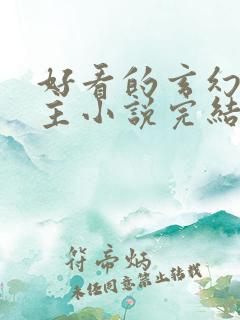 好看的玄幻
主小说完结
符帝炳
未经同意禁止转载